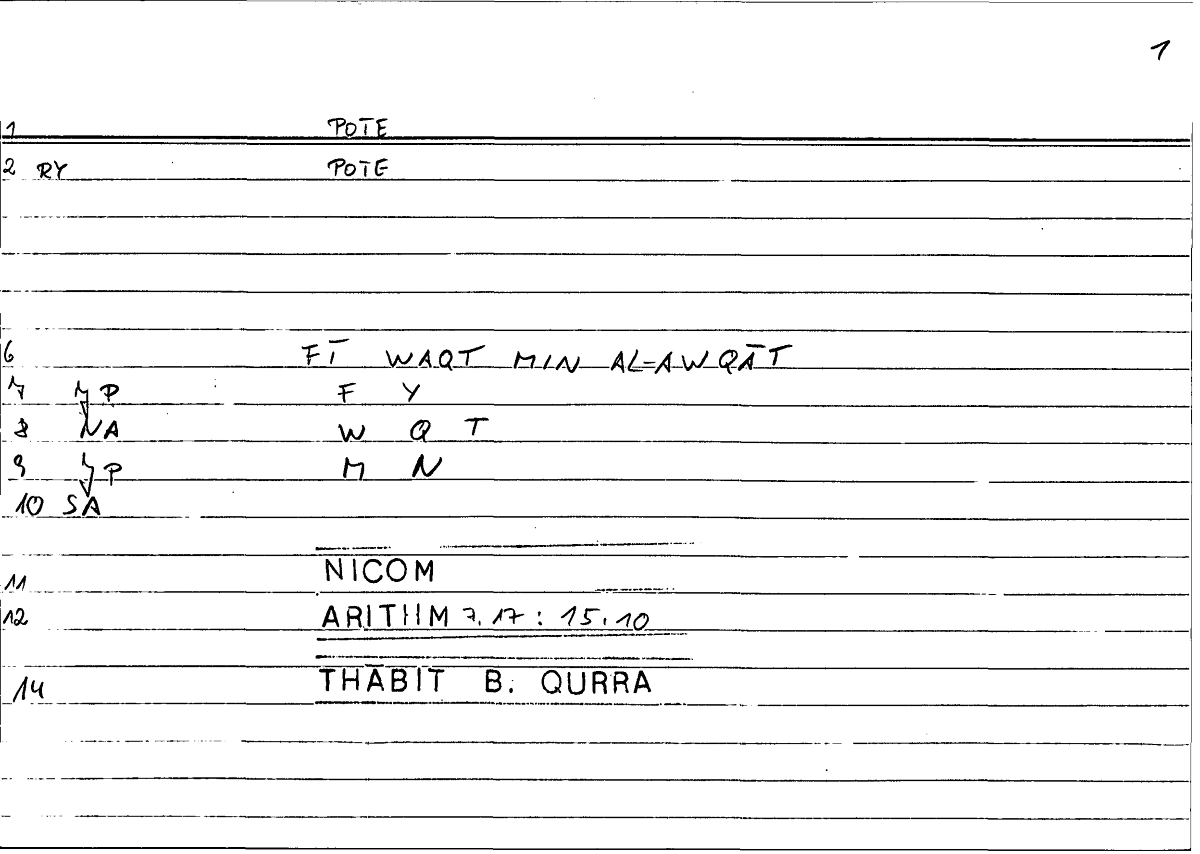 1
1 POTE
2 RY POTE
6 FĪ WAQT MIN AL-AWQĀT
7 P F Y
8 NA W Q T
9 P M N
10 SA
11 NICOM
12 ARITHM 7.17 : 15.10
14 THĀBIT B. QURRA